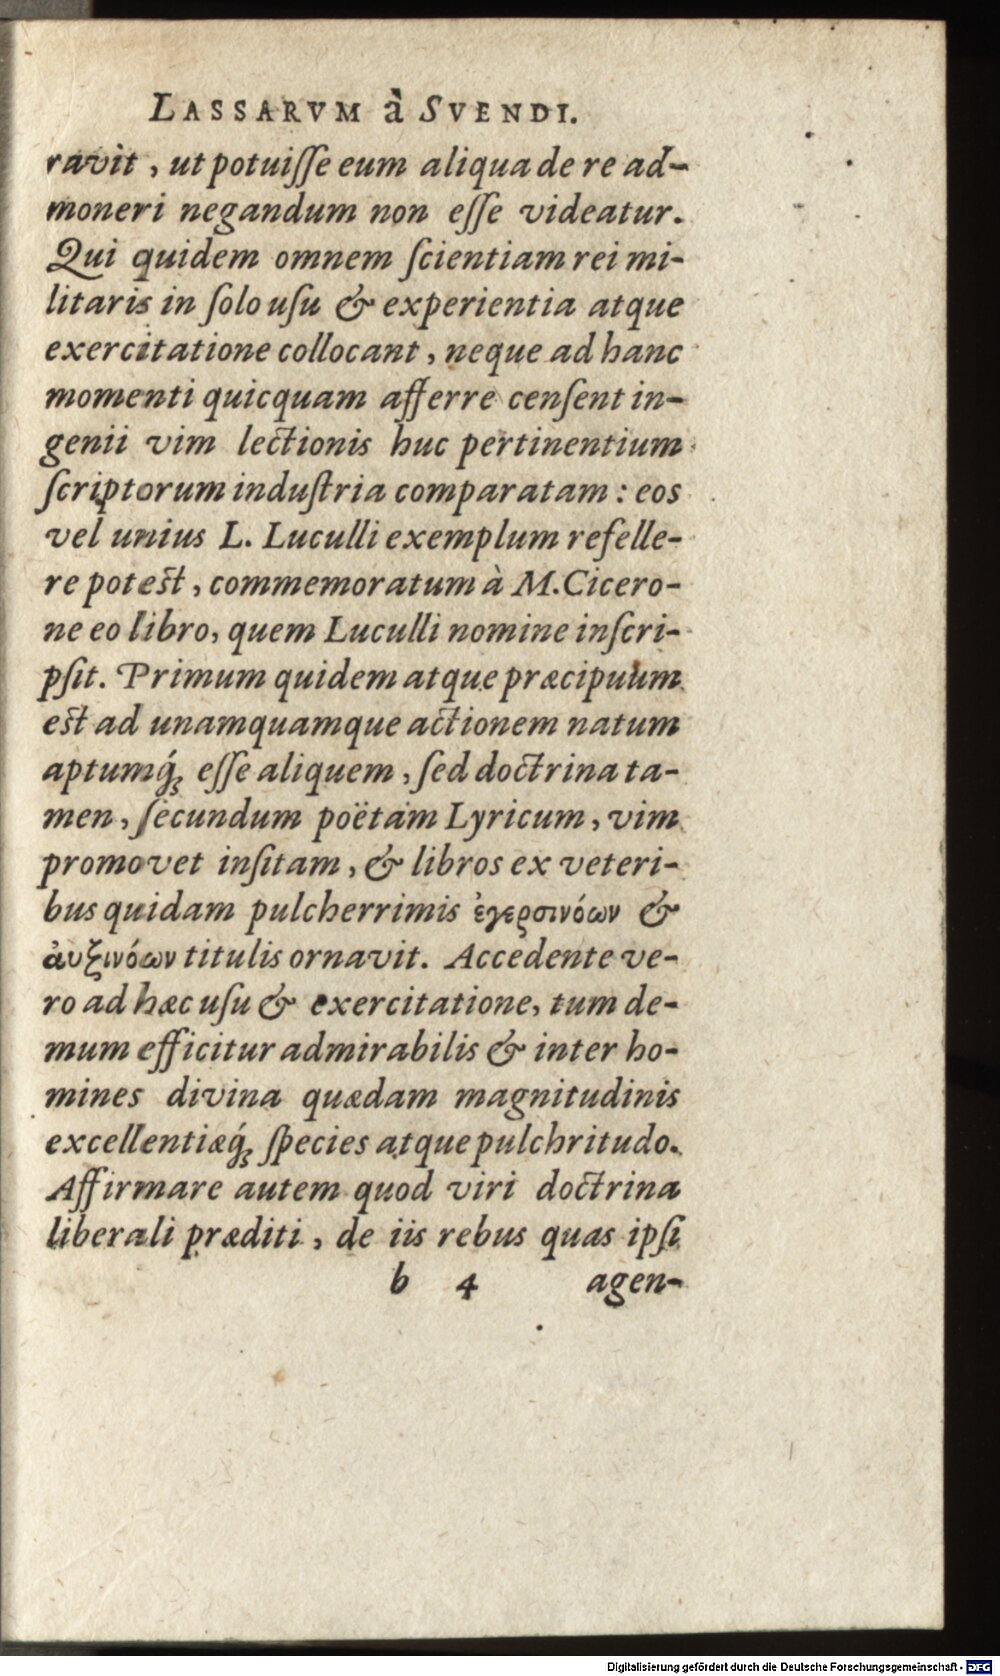 LASSARVM à SVENDI.
ravit, ut potuiſſe eum aliqua de re ad-
moneri negandum non eſſe videatur.
Qui quidem omnem ſcientiam rei mi-
litaris in ſolo uſu & experientia atque
exercitatione collocant, neque ad hanc
momenti quicquam afferre cenſent in-
genii vim lectionis huc pertinentium
ſcriptorum induſtria comparatam: eos
vel unius L. Luculli exemplum refelle-
re poteſt, commemoratum à M. Cicero-
ne eo libro, quem Luculli nomine inſcri-
pſit. Primum quidem atque præcipuum
eſt ad unamquamque actionem natum
aptumq́; eſſe aliquem, ſed doctrina ta-
men, ſecundum poëtam Lyricum, vim
promovet inſitam, & libros ex veteri-
bus quidam pulcherrimis ἐγερσινόων &
ἀυξινόων titulis ornavit. Accedente ve-
ro ad hæc uſu & exercitatione, tum de-
mum efficitur admirabilis & inter ho-
mines divina quædam magnitudinis
excellentiæq́; ſpecies atque pulchritudo.
Affirmare autem quod viri doctrina
liberali præditi, de iis rebus quas ipſi
b 4 agen-
Digitalisierung gefördert durch die Deutsche Forschungsgemeinschaft - DFG